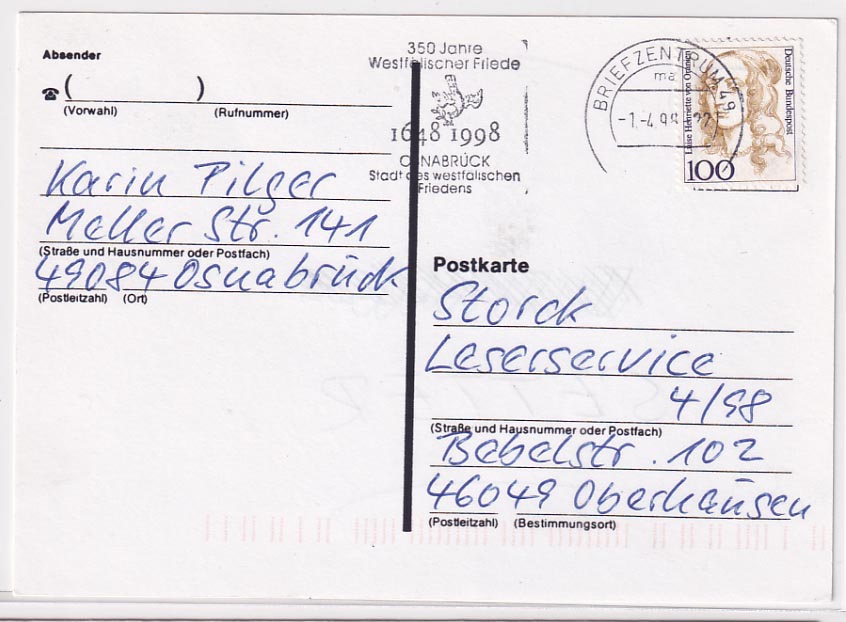 Absender
☎ ( )
(Vorwahl) (Rufnummer)
Karin Pilger
Meller Str. 141
(Straße und Hausnummer oder Postfach)
49084 Osnabrück
(Postleitzahl) (Ort)
350 Jahre
Westfälischer Friede
1648 1998
OSNABRÜCK
Stadt des westfälischen
Friedens
BRIEFZENTRUM 49
ma
-1.-4.98
Luise Henriette von Oranien
Deutsche Bundespost
100
Postkarte
Storck
Leserservice
4/98
(Straße und Hausnummer oder Postfach)
Bebelstr. 102
46049 Oberhausen
(Postleitzahl) (Bestimmungsort)